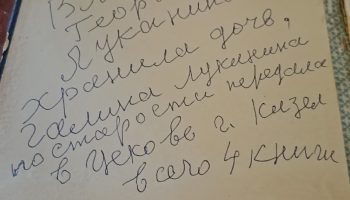 Вл
Геор
Луканин
хранила дочь,
Галина Луканина
по старости передала
в Церковь г. Кизел
всего 4 книги